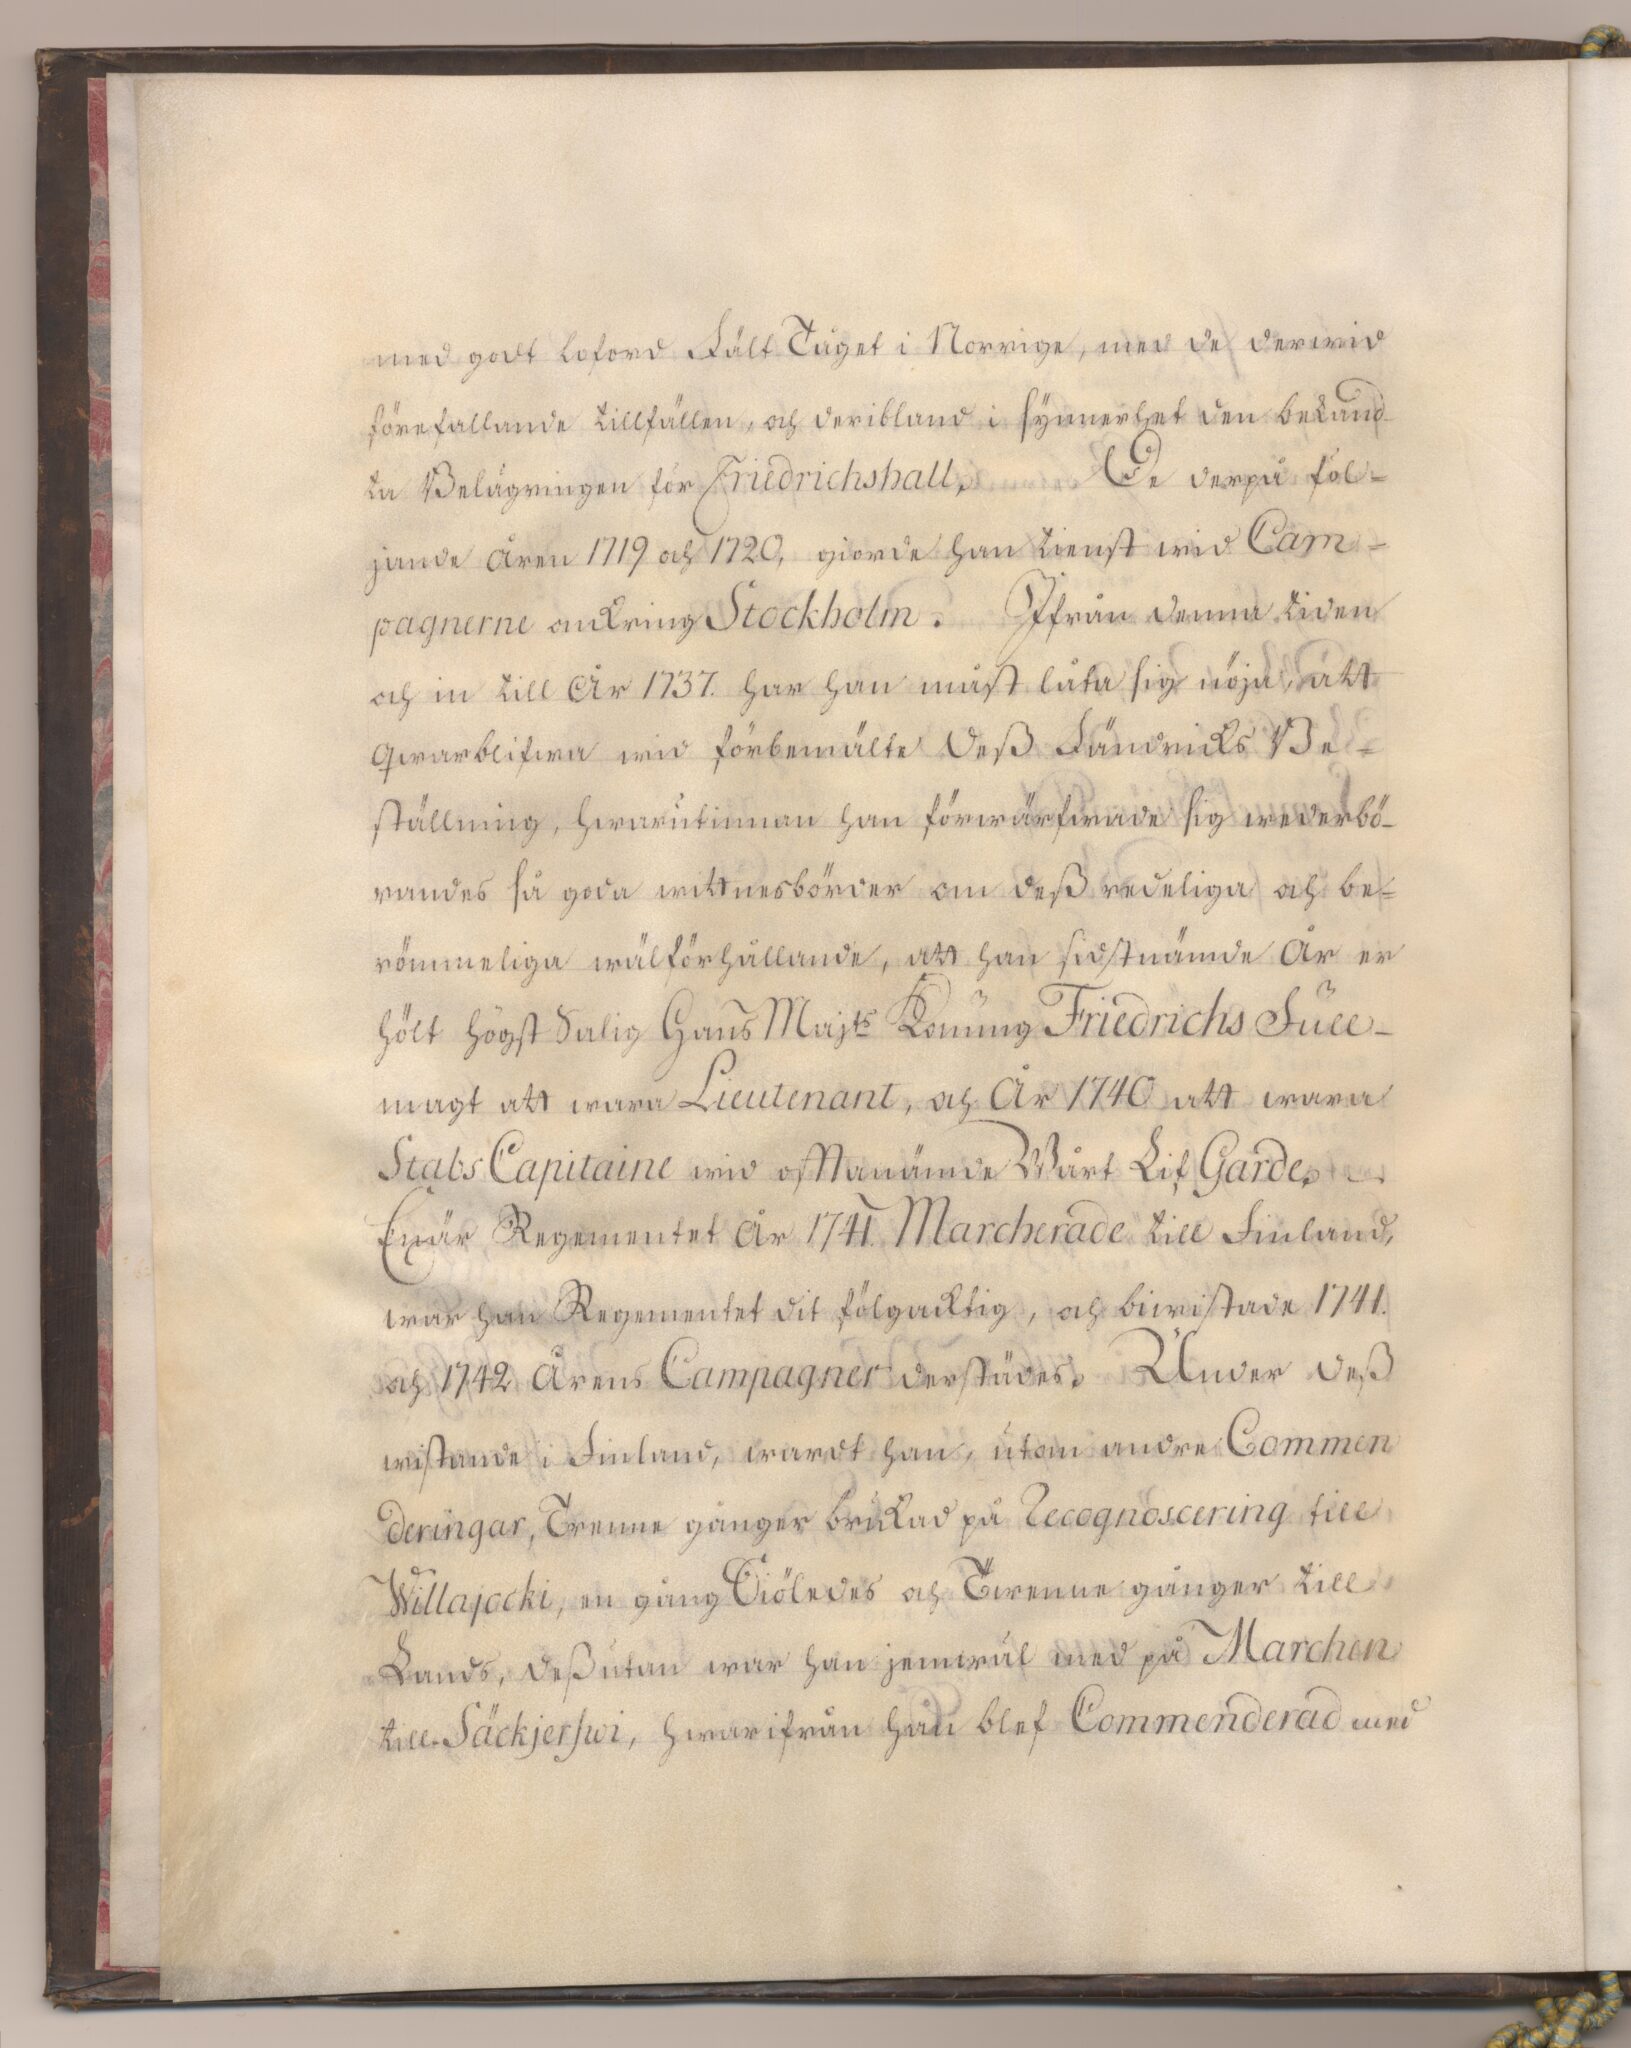 med godt loford Fält Tåget i Norrige, med de derwid
förefallande tillfällen, och deribland i synnerhet den bekand
ta Belägringen för Friedrichshall. De derpå föl=
jande Åren 1719 och 1720, giorde han tienst wid Cam=
pagnerne omkring Stockholm. Ifrån denna tiden
och in till År 1737. har han måst låta sig nöja, att
qwarblifwa wid förbemälte deß Fändricks Be=
ställning, hwarutinnan han förwärfwade sig wederbö=
randes så goda wittnesbörder om deß redeliga och be=
römmeliga wälförhållande, att han sidstnämde År er
hölt högst Salig Hans Majts Konung Friedrichs Full=
magt att wara Lieutenant, och År 1740 att wara
Stabs Capitaine wid offtanämde Wårt Lif Garde.
Enär Regementet År 1741. Marcherade till Finland,
war han Regementet dit fölgacktig, och biwistade 1741.
och 1742 Årens Campagner derstädes. Under deß
wistande i Finland, wardt han, utom andre Commen
deringar, Trenne gånger brukad på Recognoscering till
Willajocki, en gång Siöledes och Twenne gånger till
Lands, deßutan war han jemwäl med på Marchen
till Säckjerfwi, hwarifrån han blef Commenderad med